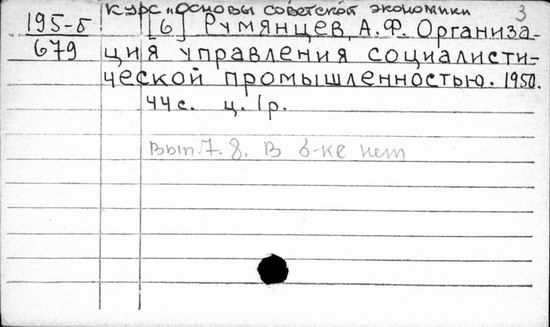 Курс „Основы советской экономики 3
195-б [6] Румянцев, А.Ф. Организа-
679 ция управления социалисти-
ческой промышленностью. 1950.
44 с. ц. 1 р.
Вып. 7. 8. В б-ке нет